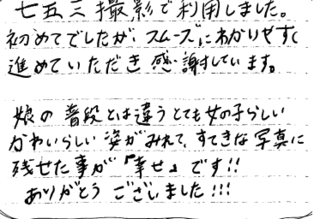 七五三撮影で利用しました。
初めてでしたが、スムーズにわかりやすく
進めていただき感謝しています。
娘の普段とは違うとても女の子らしい
かわいらしい姿がみれて、すてきな写真に
残せた事が『幸せ』です!!
ありがとうございました!!!